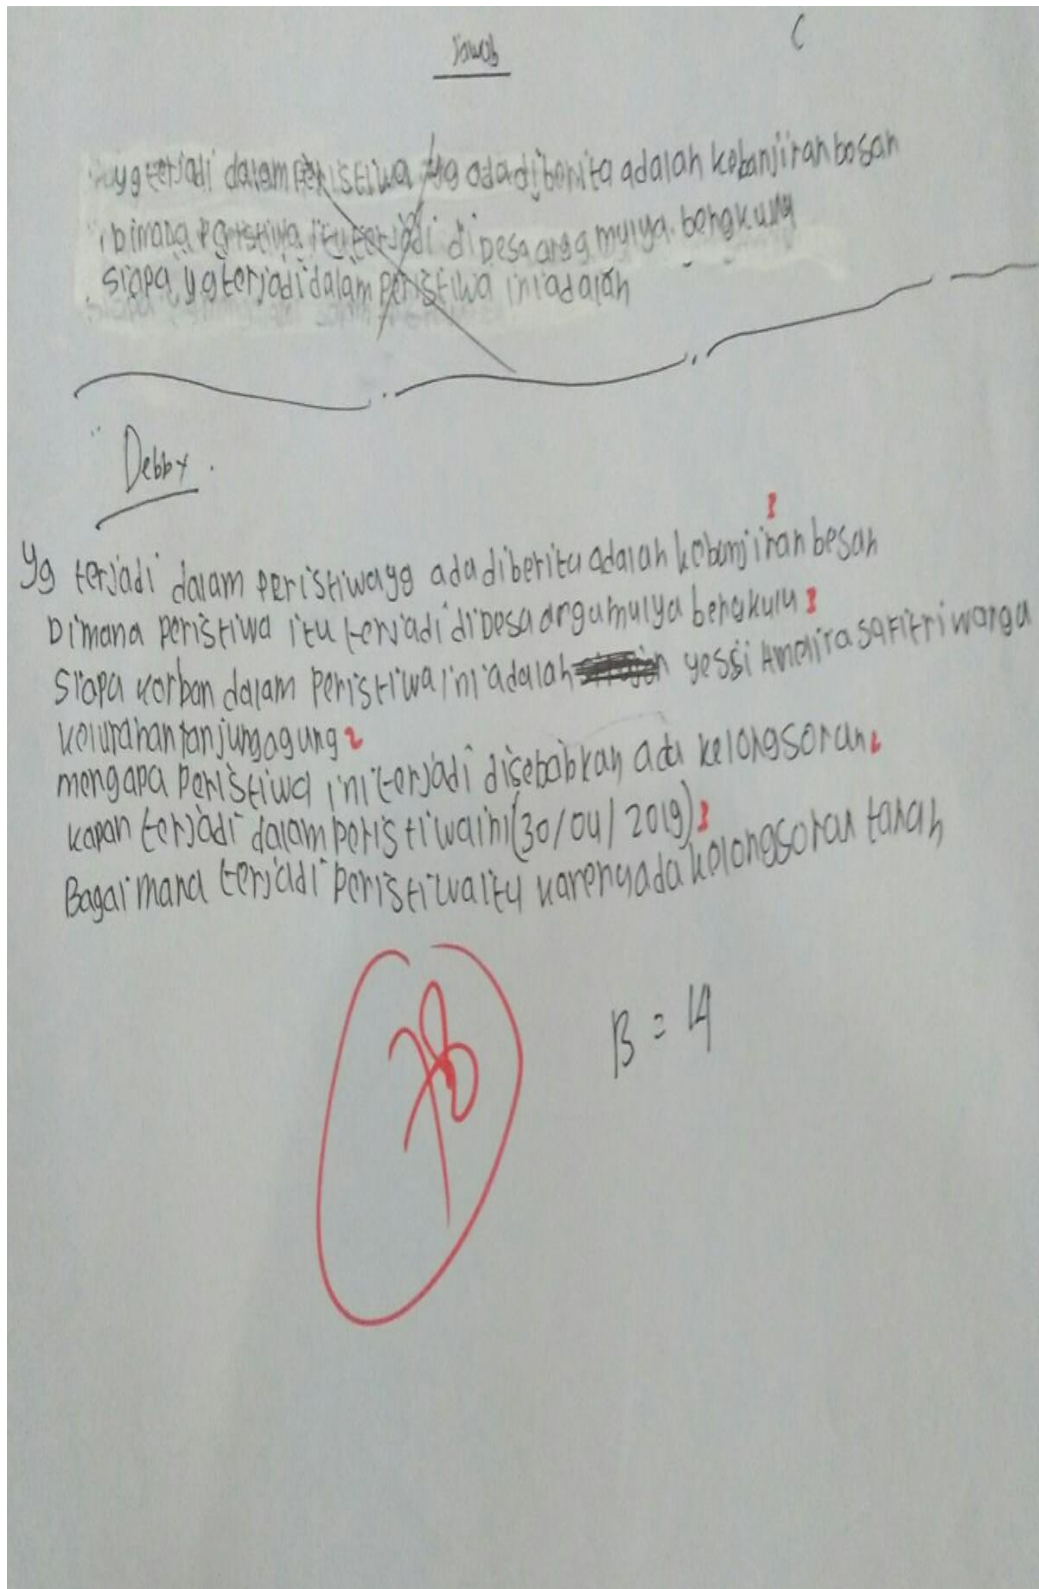 Jawab
yg terjadi dalam peristiwa yg ada diberita adalah kebanjiran besar
Dimana peristiwa itu terjadi di Desa arga mulya bengkulu
siapa yg terjadi dalam peristiwa ini adalah
Debby.
3
Yg terjadi dalam peristiwa yg ada diberita adalah kebanjiran besar
Dimana peristiwa itu terjadi di Desa argamulya bengkulu 3
Siapa korban dalam peristiwa ini adalah yessi Amelira safitri warga
kelurahan tanjung agung 2
mengapa peristiwa ini terjadi disebabkan ada kelongsoran 2
kapan terjadi dalam peristiwa ini (30/04/2019) 3
Bagaimana terjadi peristiwa itu karenyada kelongsoran tanah
78
B = 14